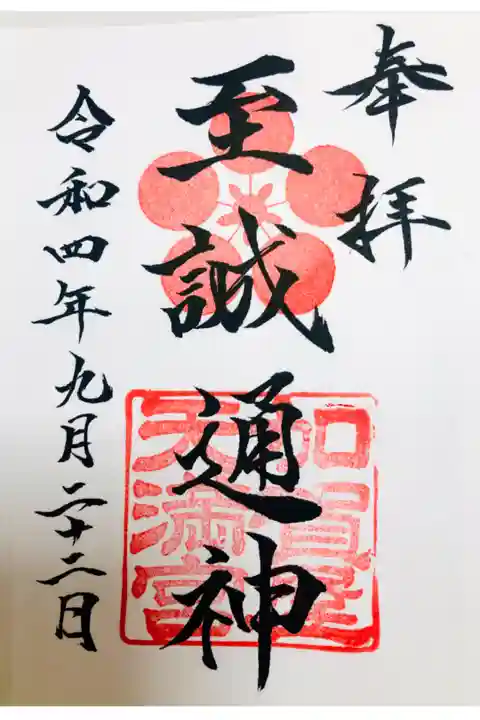 奉拝
至誠通神
加賀室
天満宮
令和四年九月二十二日